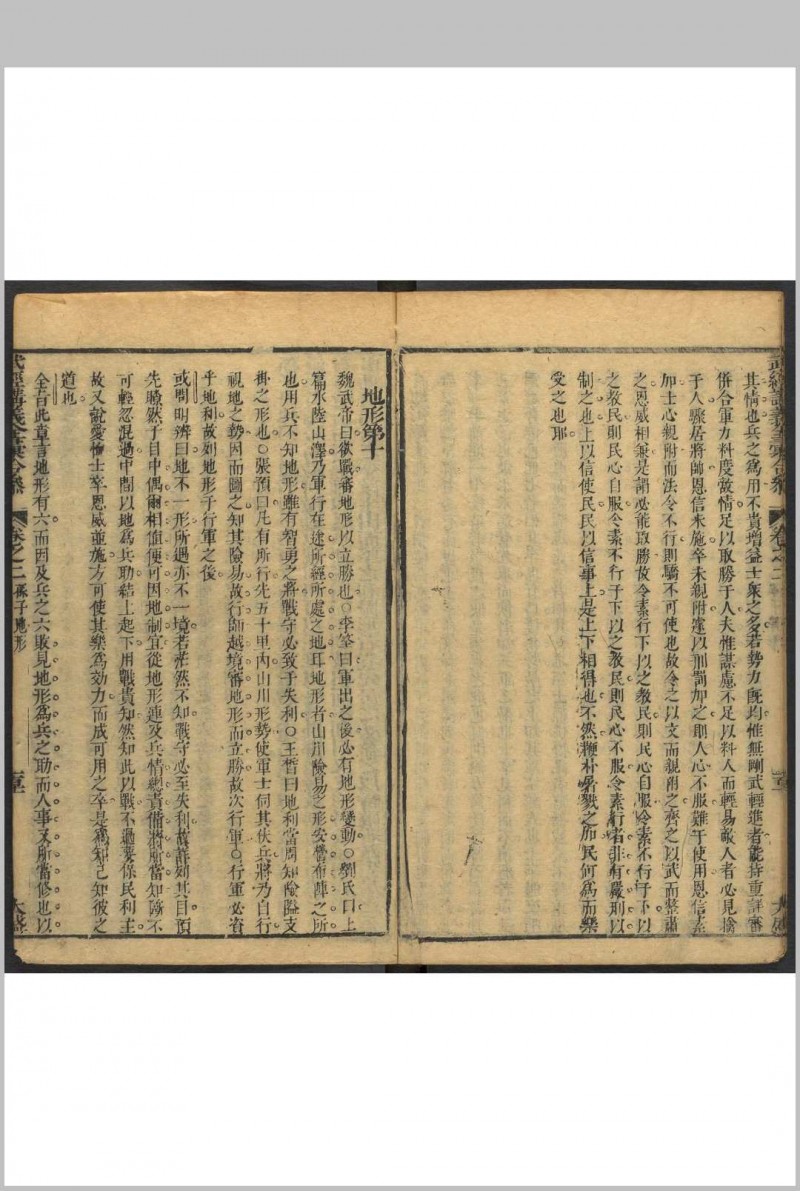 其情也兵之爲用不貴增益士衆之多若勢力既均惟無剛武輕進者能持重詳審
併合軍力料度敵情足以取勝于人夫惟謀慮不足以料人而輕易敵人者必見擒
于人驟居將帥恩信未施卒未親附遽以刑罰加之則人心不服難于使用恩信素
加士心親附而法令不行則驕不可使也故令之以文而親附之齊之以武而整肅
之恩威相兼是謂必能取勝故令素行下以之敎民則民心自服令素不行于下以
之敎民則民心自服令素不行于下以之敎民則民心不服令素行者非有嚴刑以
制之也上以信使民民以信事上是上下相得也不然鞭朴
之而民何爲而樂
受之也耶
地形第十
魏武帝曰欲戰審地形以立勝也○李筌曰軍出之後必有地形變動○劉氏曰上
篇水陸山澤乃軍行在途所經所處之地耳地形者山川險易之形安營布陣之所
也用兵不知地形雖有智勇之將戰守必致于失利○王晳曰地利當周知險隘支
掛之形也○張預曰凡有所行先五十里內山川形勢使軍士伺其伏兵將乃自行
視地之勢因而圖之知其險易故行師越境審地形而立勝故次行軍○行軍必資
乎地利故列地形于行軍之後
或問明濟曰地不一形所遇亦不一境若茫然不知戰守必至失利故詳列其目預
先瞭然于目中偶爾相値便可因地制宜從地形連及兵情總責備將所當知斷不
可輕忽混過中間以地爲兵助結上起下用戰貴知然知此以戰不過要保民利主
故又說愛恤士卒恩威並施方可使其樂爲効力而成可用之卒是爲知己知彼之
道也
全旨此章言地形有六而因及兵之六敗見地形爲兵之助而人事又所當修也以
武經講義全彙合叅 卷之二 孫子地形